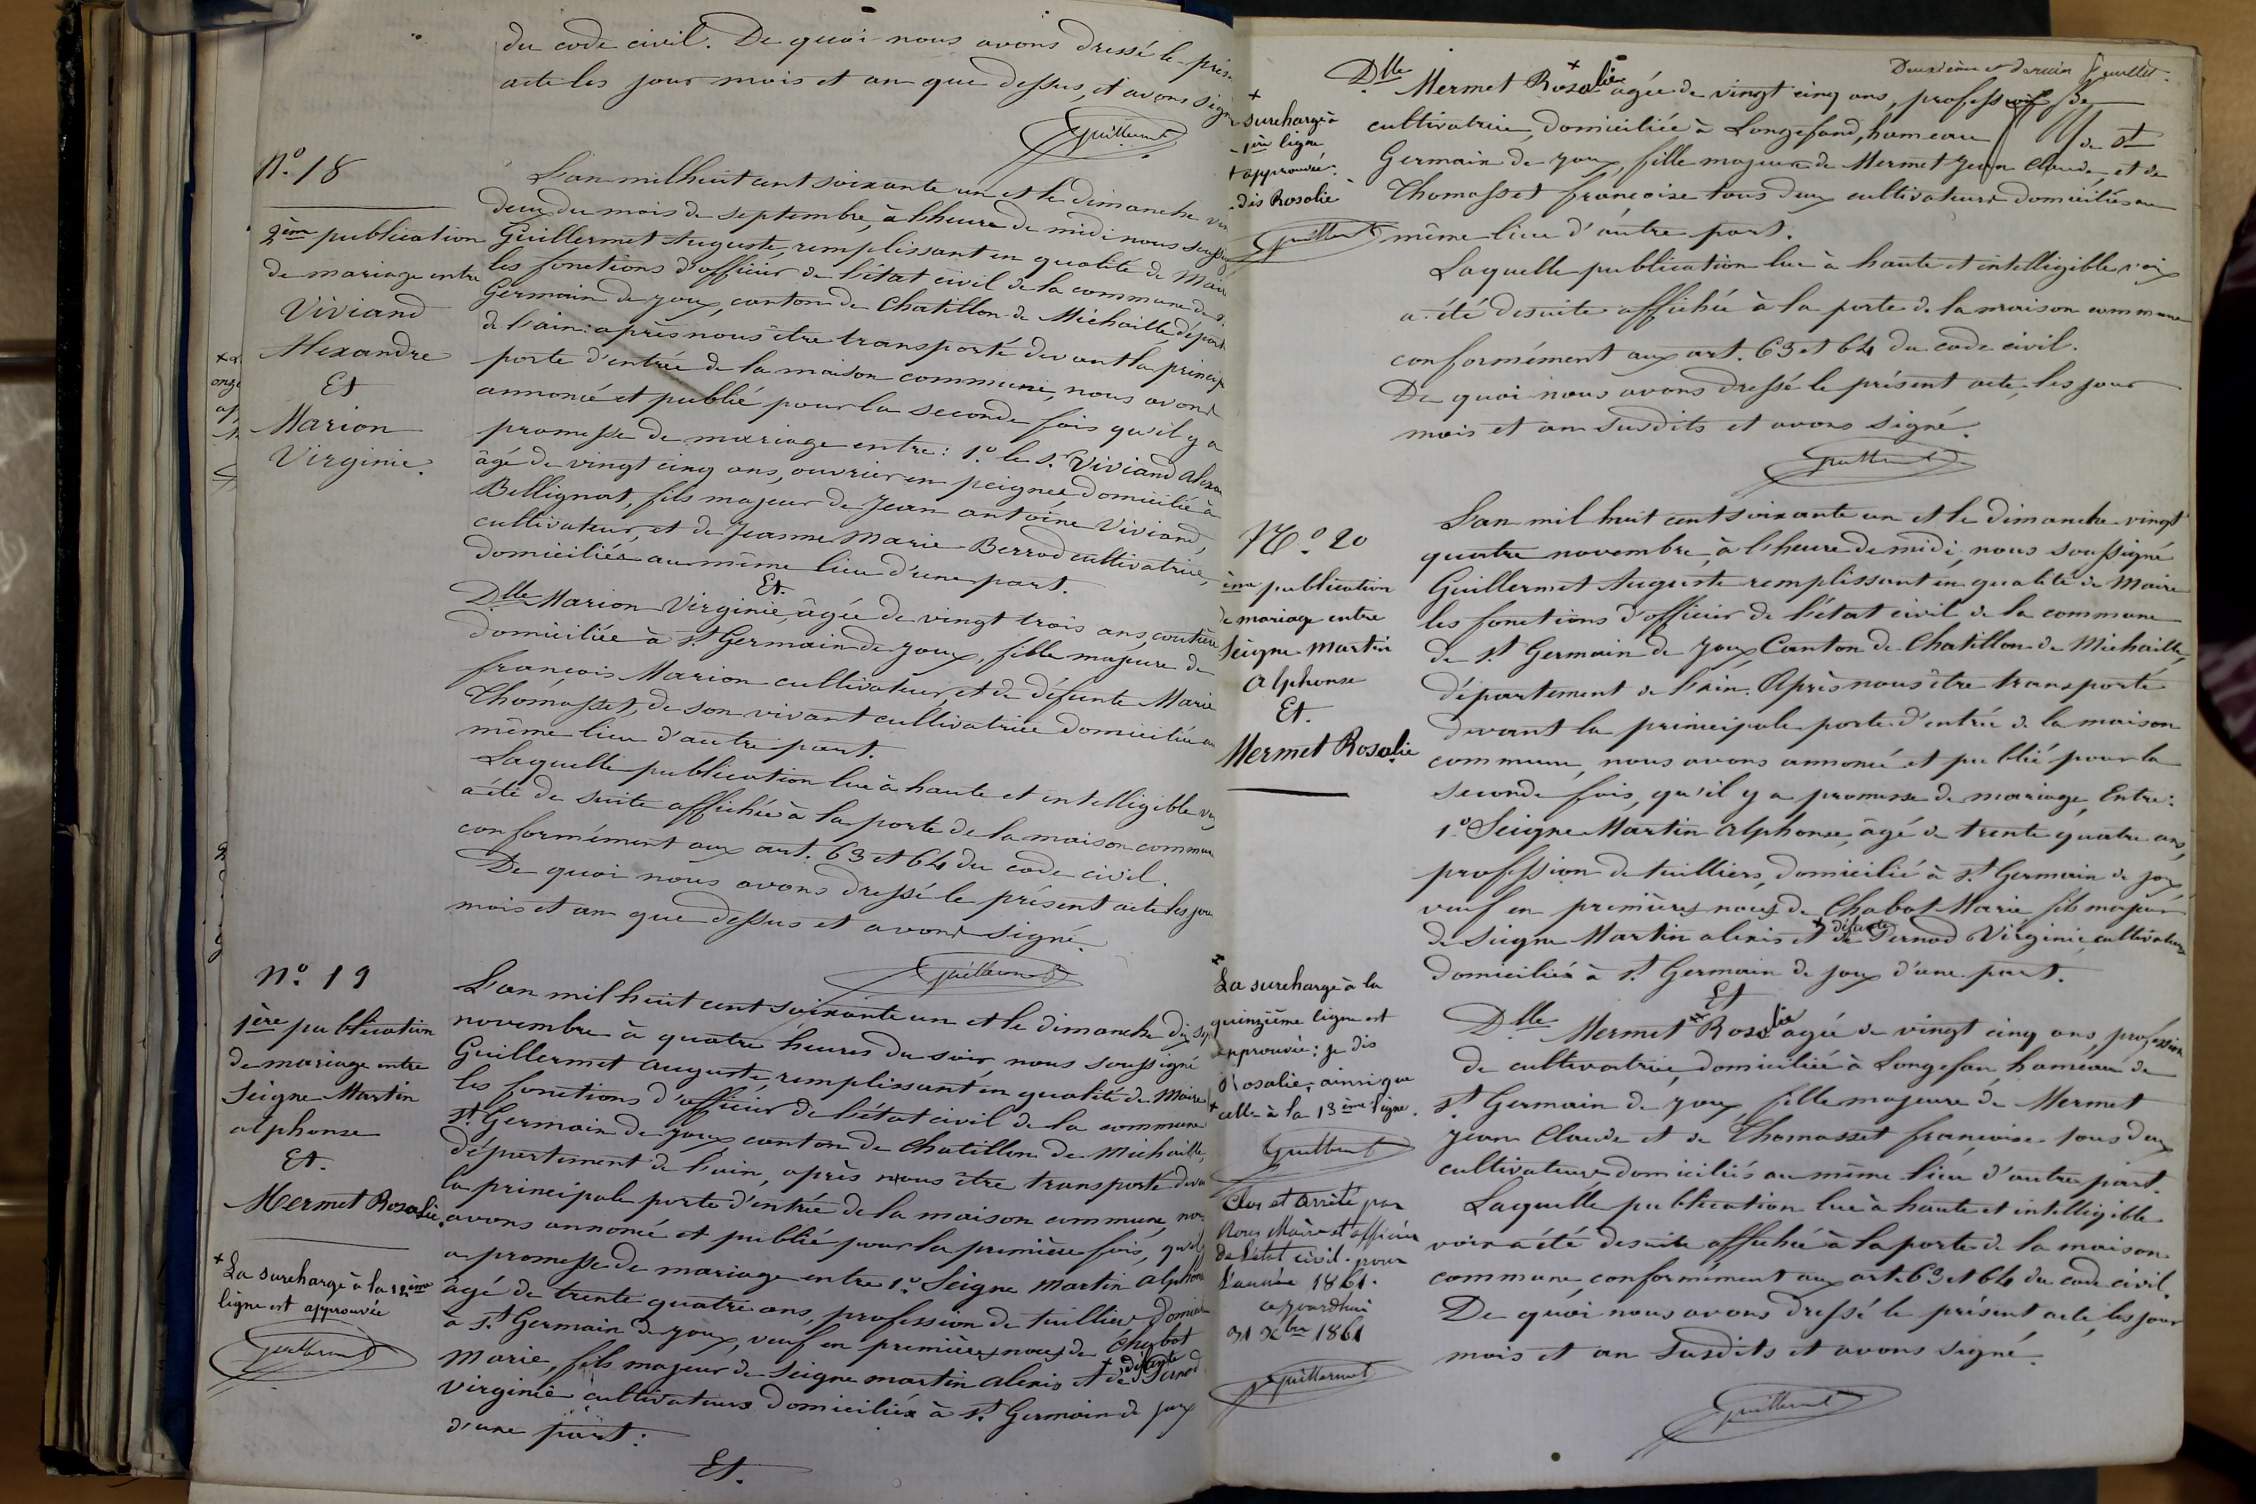 du code civil. De quoi nous avons dressé le
acte les jour mois et an que dessus, et avons
Guillermet
N.º 18
2ème publication
de mariage entre
Viviand
Alexandre
Et
Marion
Virginie.
L'an mil huit cent soixante un et le dimanche
deux du mois de septembre, à l'heure de midi nous
Guillermet Auguste, remplissant en qualité de Maire
les fonctions d'officier de l'état civil de la commune de
Germain de joux, canton de Chatillon de Michaille,
de l'ain: après nous être transporté devant la
porte d'entrée de la maison commune, nous avons
annoncé et publié pour la seconde fois qu'il y a
promesse de mariage entre: 1.º le s.r Viviand
âgé de vingt cinq ans, ouvrier en peignes domicilié à
Bellignat, fils majeur de Jean antoine Viviand,
cultivateur, et de Jeanne Marie Berrod cultivatrice,
domiciliés au même lieu d'une part.
Et.
Dlle Marion Virginie, âgée de vingt trois ans,
domiciliée à St Germain de joux, fille majeure de
françois Marion cultivateur, et de défunte Marie
Thomasset, de son vivant cultivatrice domiciliée au
même lieu d'autre part.
Laquelle publication lue à haute et intelligible
a été de suite affichée à la porte de la maison
conformément aux art. 63 et 64 du code civil.
De quoi nous avons dressé le présent acte les
mois et an que dessus et avons signé.
Guillermet
N.º 19
1ère publication
de mariage entre
Seigne Martin
alphonse
Et.
Mermet Rosalie.
+ La surcharge à la 12ème
ligne est approuvée
Guillermet
L'an mil huit cent soixante un et le dimanche
novembre à quatre heures du soir nous soussigné
Guillermet auguste, remplissant en qualité de Maire
les fonctions d'officier de l'état civil de la commune
St Germain de joux canton de chatillon de Michaille,
département de l'ain, après nous être transporté
la principale porte d'entrée de la maison commune,
avons annoncé et publié pour la première fois,
a promesse de mariage entre 1.º Seigne Martin
âgé de trente quatre ans, profession de tuillier
à St Germain de joux, veuf en premières noces de Chabot
Marie, fils majeur de Seigne martin alexis et de + défunte
Virginie cultivateurs domiciliés à St Germain de joux
d'une part:
Et.
Deuxième et dernier feuillet.
+
surcharge à
1ère ligne
approuvée.
dis Rosalie
Guillermet
Dlle Mermet Rosalie âgée de vingt cinq ans, profession de
cultivatrice, domiciliée à Longefand, hameau de St
Germain de joux, fille majeure de Mermet Jean Claude, et de
Thomasset françoise tous deux cultivateurs domiciliés au
même lieu d'autre part.
Laquelle publication lue à haute et intelligible voix
a été desuite affichée à la porte de la maison commune
conformément aux art. 63 et 64 du code civil.
De quoi nous avons dressé le présent acte, les jour
mois et an susdits et avons signé.
Guillermet
N.º 20
ème publication
de mariage entre
Seigne Martin
alphonse
Et.
Mermet Rosalie
L'an mil huit cent soixante un et le dimanche vingt
quatre novembre, à l'heure de midi, nous soussigné
Guillermet Auguste remplissant en qualité de Maire
les fonctions d'officier de l'état civil de la commune
de St Germain de joux Canton de Chatillon de Michaille,
département de l'ain. Après nous être transporté
devant la principale porte d'entrée de la maison
commune, nous avons annoncé et publié pour la
seconde fois, qu'il y a promesse de mariage, Entre:
1.º Seigne Martin alphonse, âgé de trente quatre ans,
profession de tuilliers, domicilié à St Germain de joux,
veuf en premières noces de Chabot Marie fils majeur
de Seigne Martin alexis et de + défunte Pernod Virginie, cultivateurs
domiciliés à St Germain de joux d'une part.
Et
Dlle Mermet Rosalie âgée de vingt cinq ans, profession
de cultivatrice, domiciliée à Longefan, hameau de
St Germain de joux, fille majeure de Mermet
Jean Claude et de Thomasset francoise tous deux
cultivateurs, domiciliés au même lieu d'autre part.
Laquelle publication lue à haute et intelligible
voix a été desuite affichée à la porte de la maison
commune, conformément aux art. 63 et 64 du code civil.
De quoi nous avons dressé le présent acte, les jour
mois et an susdits et avons signé.
Guillermet
+
La surcharge à la
quinzième ligne est
approuvée; je dis
Rosalie; ainsi que
+ celle à la 13ème ligne.
Guillermet
Clos et arrêté par
Nous Maire et officier
de l'état civil. pour
L'année 1861.
aujourdhui
31 Xbre 1861
Guillermet